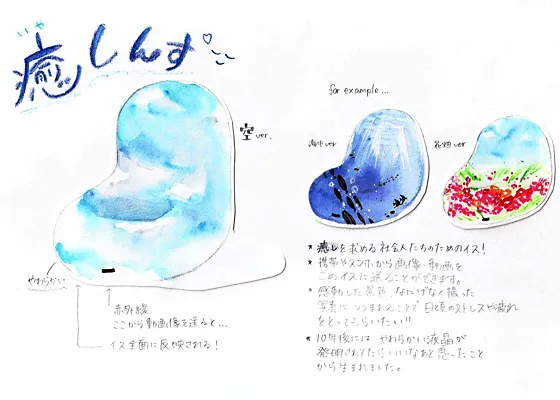 いや
癒しんす♡
空 ver.
やわらかい
赤外線
ここから動画像を送ると…
イス全面に反映される！
for example...
海中 ver
花畑 ver
* 癒しを求める社会人たちのためのイス！
* 携帯やスマホから画像・動画を
このイスに送ることができます。
* 感動した景色、なにげなく撮った
写真につつまれることで日頃のストレスや疲れ
をとってもらいたい!!
* 10年後には やわらかい液晶が
発明されてたらいいなあと思ったこと
から生まれました。